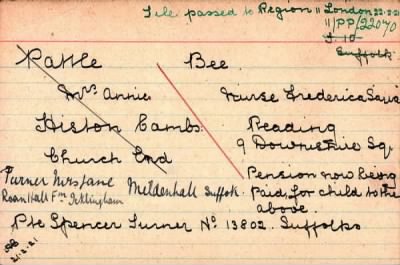 File passed to Region 11 London 22-2-21
11/PP/22070
Suffolk
Rattle Bee
Mrs Annie
Histon Cambs
Church End
Nurse Frederica
Reading
9 Downshire Sq.
Pension now being
Paid, for child to the
above.
Turner Mrs Jane Mildenhall Suffolk
Roan Hall Fm Icklingham
Pte Spencer Turner No 13802. Suffolks
21.2.21